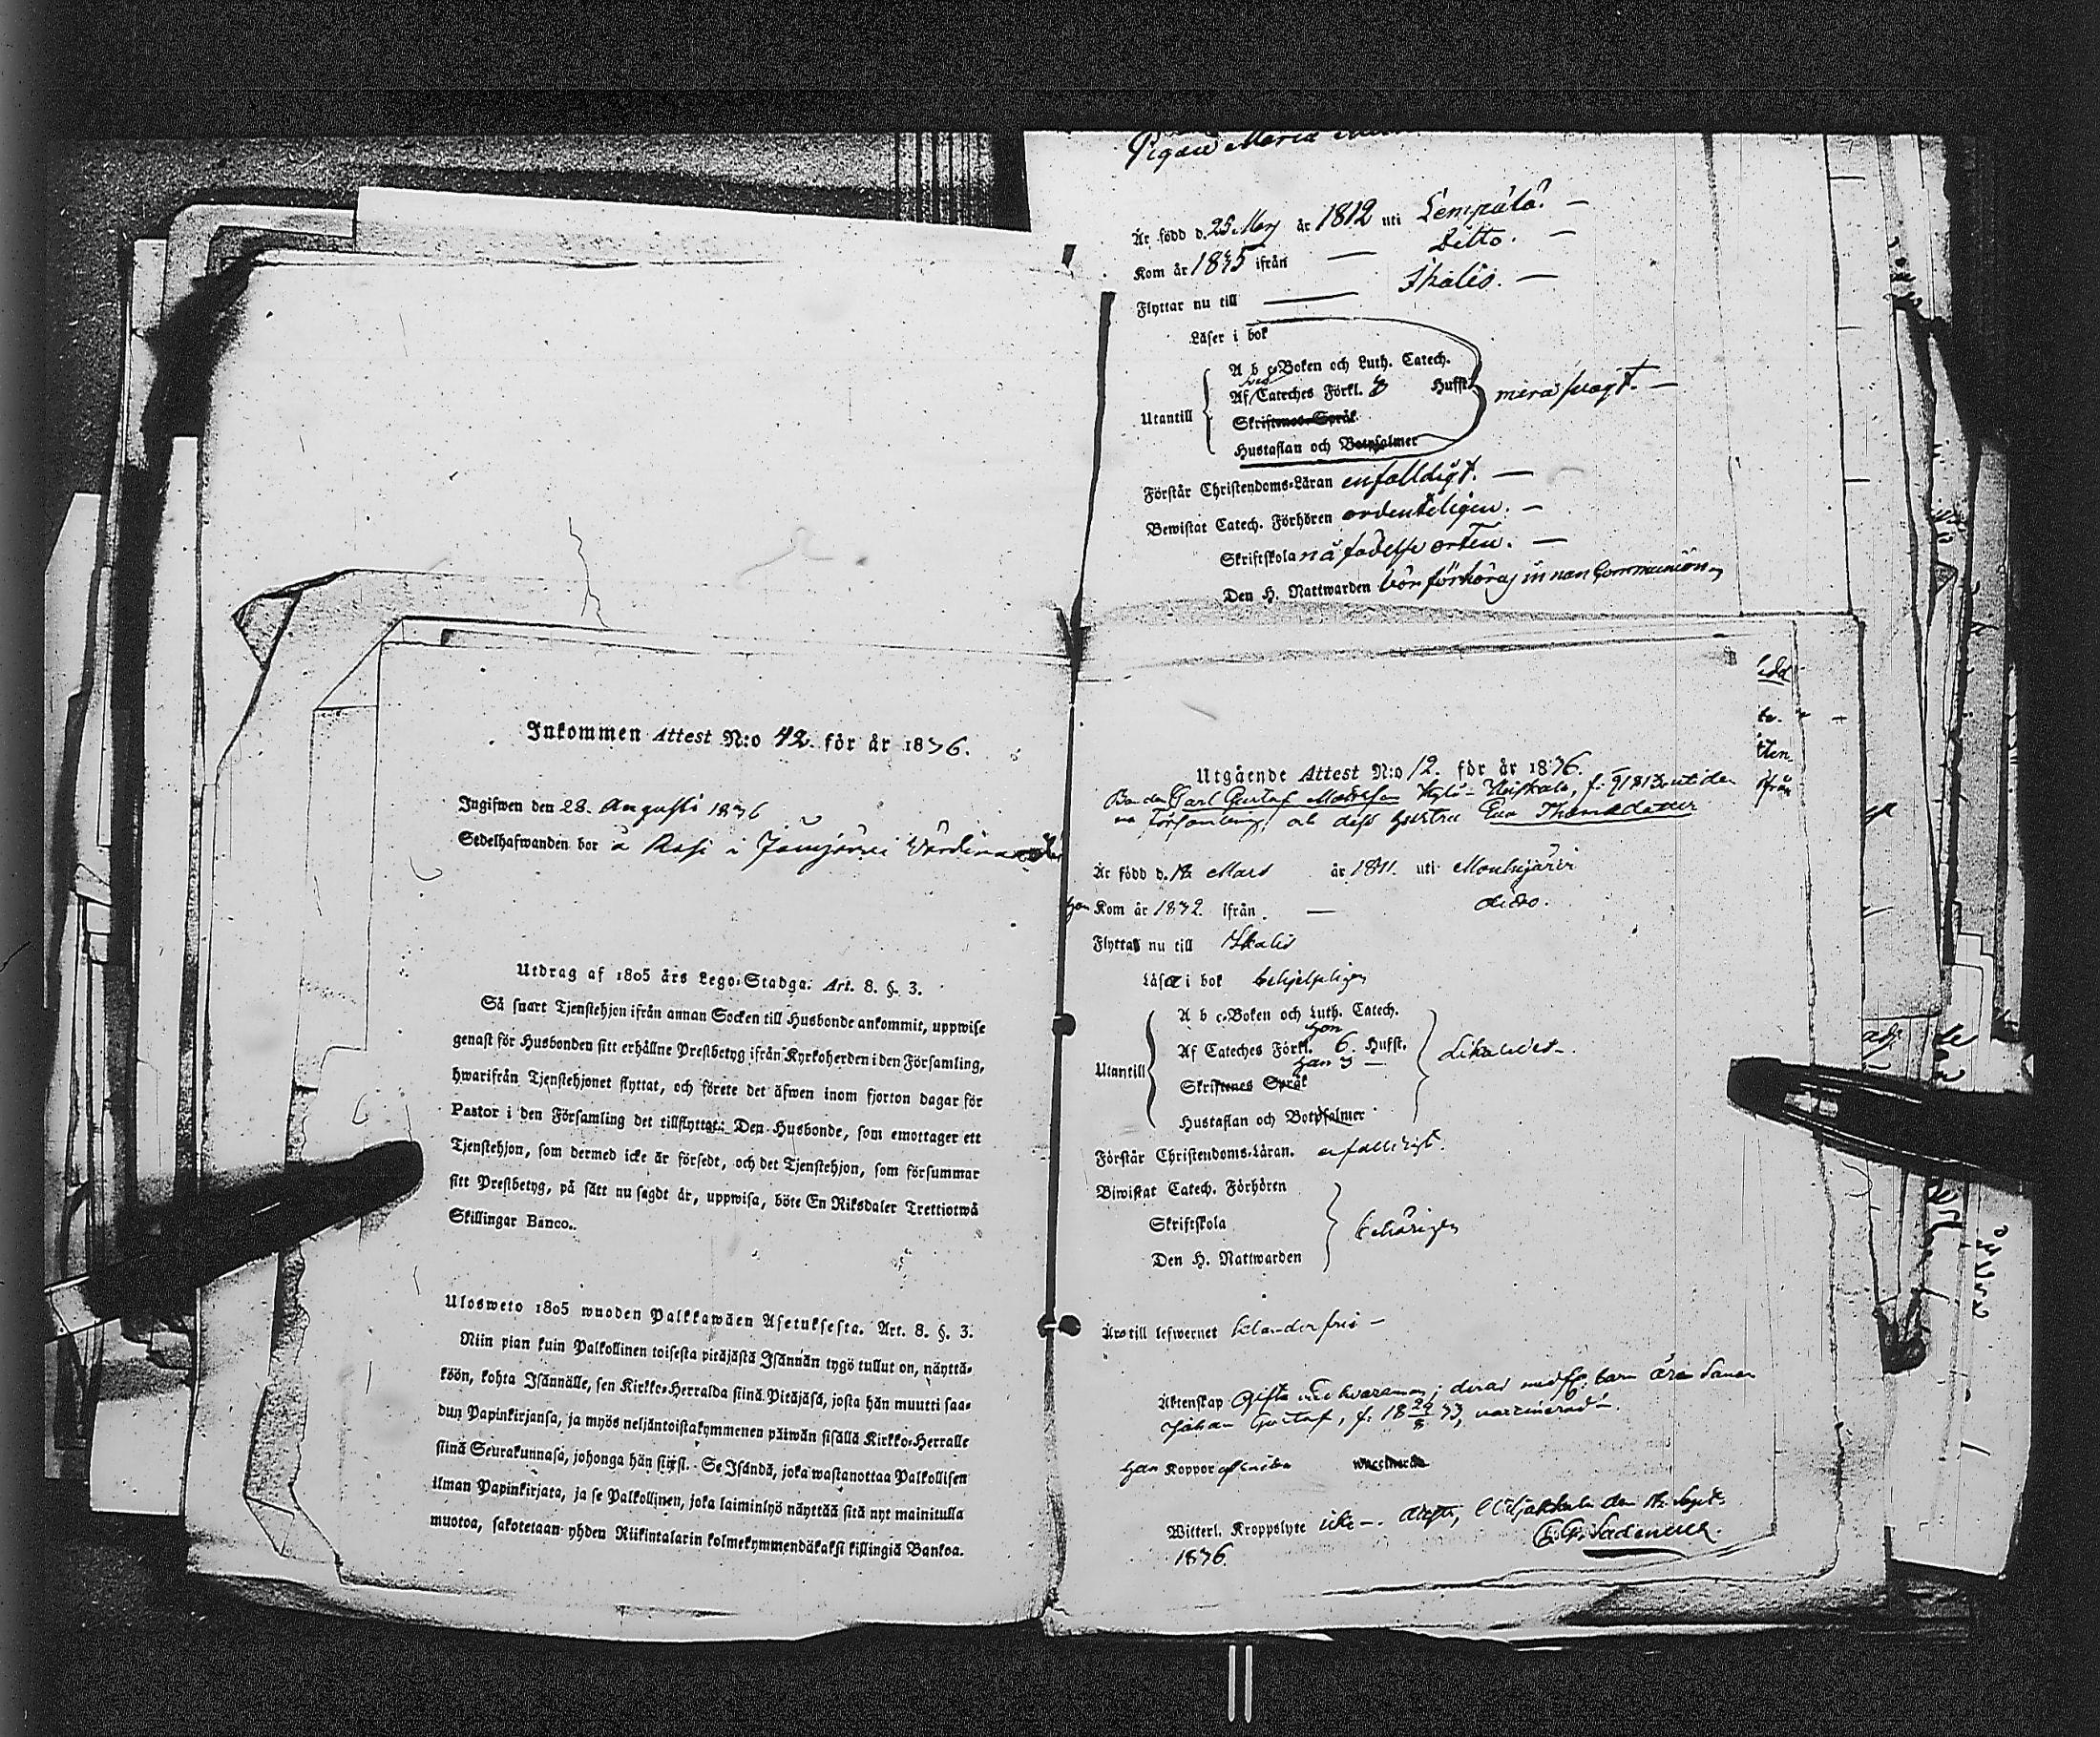 Inkommen Attest N:o 42. för år 1836.
Ingifwen den 28. Augusti 1836
Sedelhafwanden bor å Rasi i
Utdrag af 1805 års Lego-Stadga. Art. 8. §. 3.
Så snart Tjenstehjon ifrån annan Socken till Husbonde ankommit, uppwise
genast för Husbonden sitt erhållne Prestbetyg ifrån Kyrkoherden i den Församling,
hwarifrån Tjenstehjonet flyttat, och förete det äfwen inom fjorton dagar för
Pastor i den Församling det tillflyttat. Den Husbonde, som emottager ett
Tjenstehjon, som dermed icke är försedt, och det Tjenstehjon, som försummar
sitt Prestbetyg, på sätt nu sagdt är, uppwisa, böte En Riksdaler Trettiotwå
Skillingar Banco.
Ulosweto 1805 wuoden Palkkawäen Asetuksesta. Art. 8. §. 3.
Niin pian kuin Palkollinen toisesta pitäjästä Isännän tygö tullut on, näyttä-
köön, kohta Isännälle, sen Kirkko-Herralda siinä Pitäjäsä, josta hän muutti saa-
dun Papinkirjansa, ja myös neljäntoistakymmenen päiwän sisällä Kirkko-Herralle
siinä Seurakunnasa, johonga hän siirsi. Se Isändä, joka wastanottaa Palkollisen
ilman Papinkirjata, ja se Palkollinen, joka laiminlyö näyttää sitä nyt mainitulla
muotoa, sakotetaan yhden Riikintalarin kolmekymmendäkaksi killingiä Bankoa.
Pigan Maria
Är född d. 25 Maij år 1812 uti Lempälä. —
Kom år 1835 ifrån — Ditto. —
Flyttar nu till — Ikalis. —
Läser i bok
A b c-Boken och Luth. Catech.
Utantill Af Cateches Förkl. Hufst. mera svagt. —
Skriftenes Språk
Hustaflan och Botpsalmer
Förstår Christendoms-Läran enfalldigt. —
Bewistat Catech. Förhören ordenteligen. —
Skriftskola på födelse orten. —
Den H. Nattwarden bör förhöras innan Communion
Utgående Attest N:o 12. för år 1836.
Bonden Carl Gustaf f. uti den
na församling, och dess hustru Eva Thomasdotter
Är född d. 12 Mars år 1811. uti Mouhijärvi
Kom år 1832. ifrån — ditto.
Flytta nu till Ikalis
Läsa i bok behjelpligen
A b c-Boken och Luth. Catech.
hon
Utantill Af Cateches Förkl. 6. Hufst. likaledes.
han 3 —
Skriftenes Språk
Hustaflan och Botpsalmer
Förstår Christendoms-Läran. enfalldigt.
Biwistat Catech. Förhören
Skriftskola behörigen
Den H. Nattwarden
Äro till lefwernet klanderfrie —
Äktenskap Gifte med hvarannan; deras medf. barn äro Sonen
Johan Gustaf, f. 18 29/8 33, vaccinerad.
Koppor waccinerad
Witterl. Kroppslyte icke —. den 12 Sept.
1836.